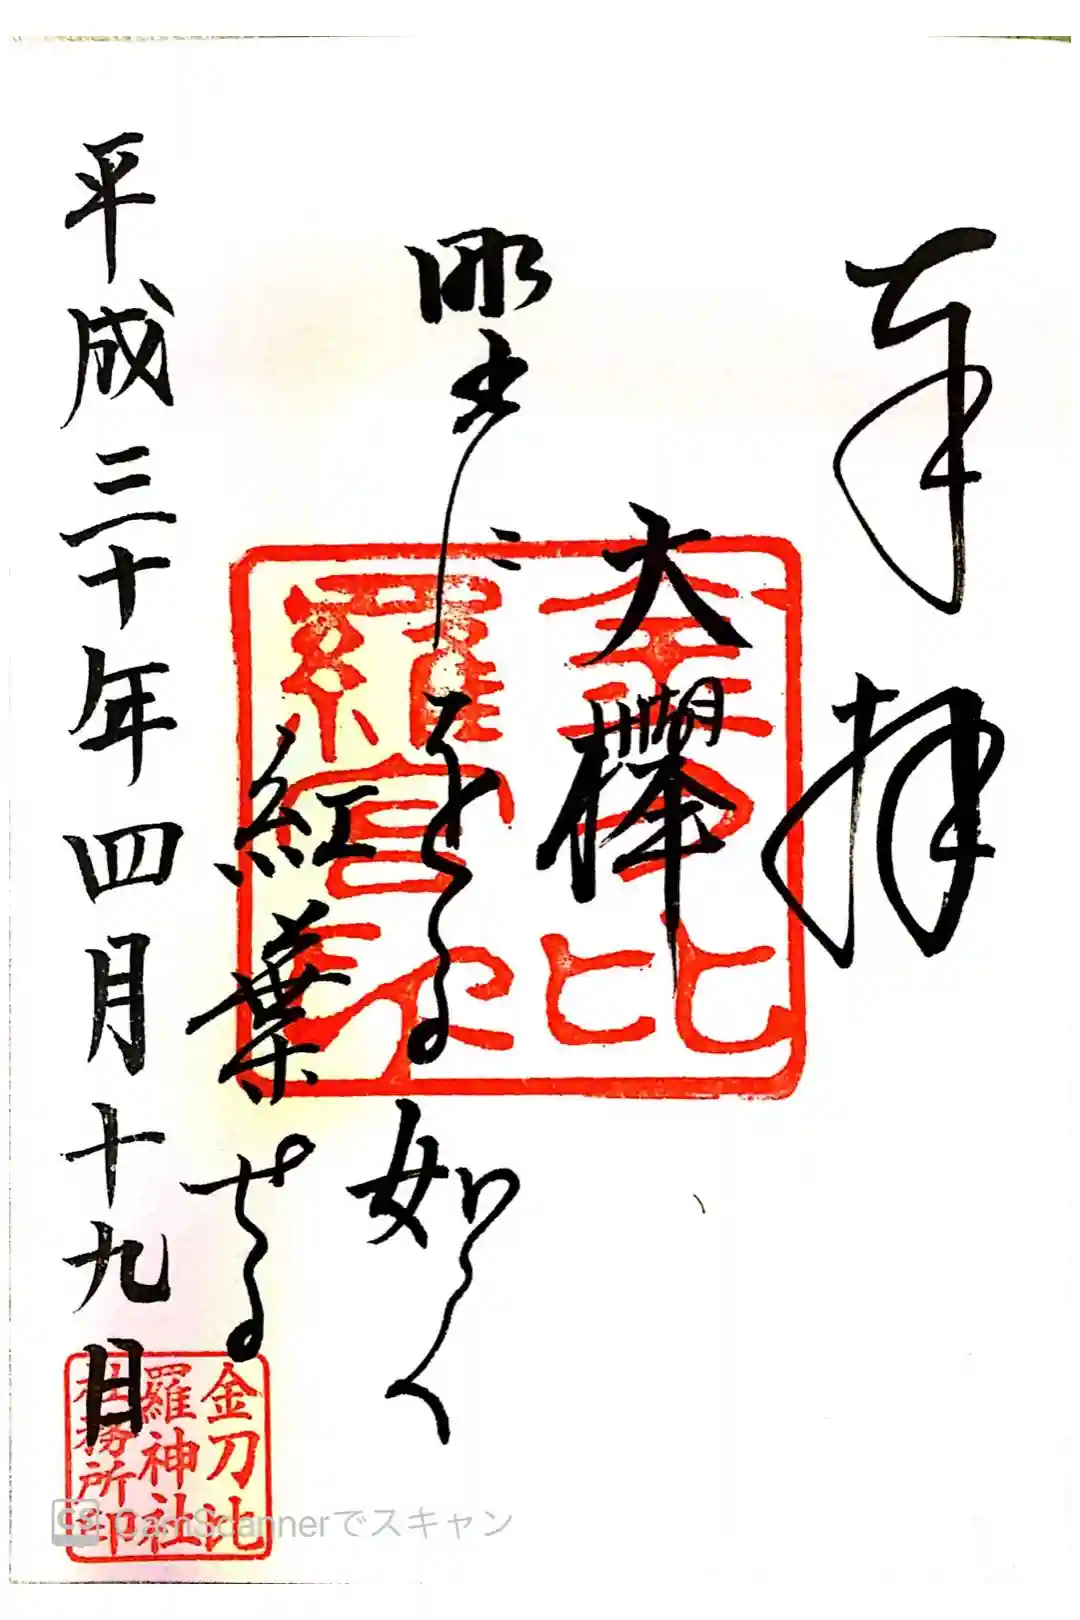 奉拝
大欅
如く
紅葉せる
平成三十年四月十九日
金刀比
羅宮印
金刀比
羅神社
社務所印
CS CamScannerでスキャン